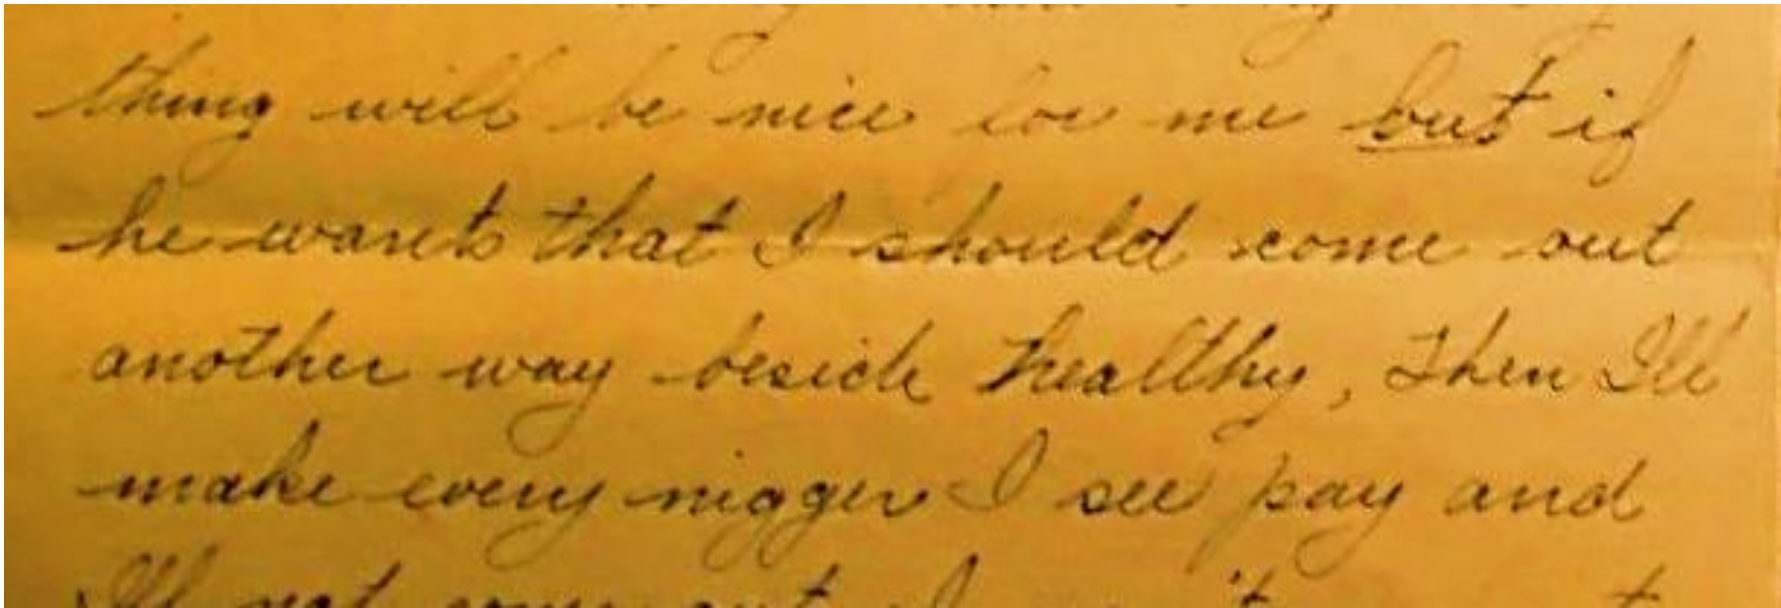 thing will be nice for me but if
he wants that I should come out
another way beside healthy, Then I'll
make every nigger I see pay and